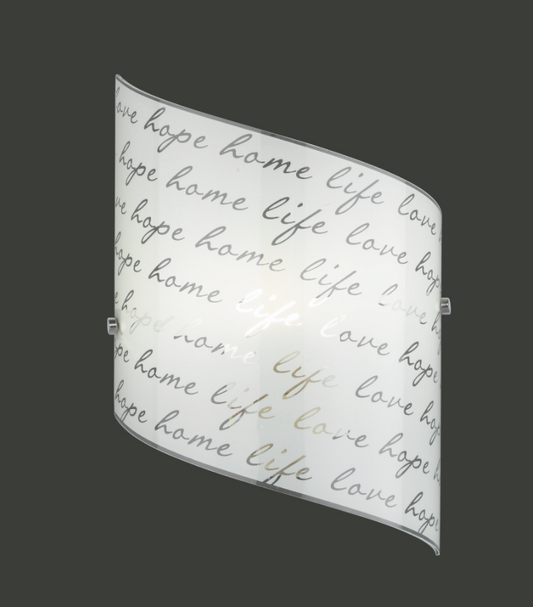 love hope home life love
hope home life love hope
love hope home life love
hope home life love hope
hope home life love hope
home life love hope
hope home life love hope